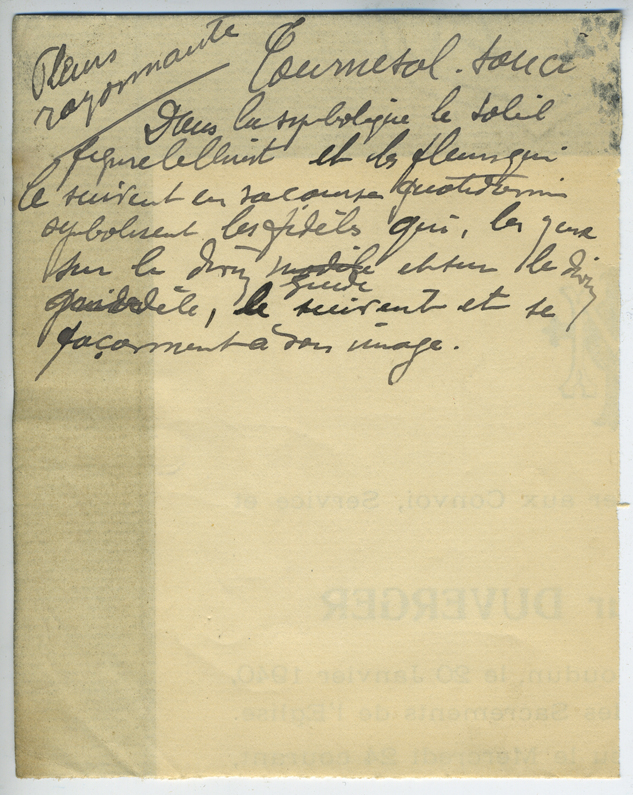 Fleurs
rayonnante
Tournesol. Souci
Dans la sybolique le soleil
figure le Christ et les fleurs qui
le suivent en sa course quotidienne
sybolisent les fidèles qui, les yeux
sur le divin modèle et sur le divin
guide
modèle, le suivent et se
façonnent à son image.
aux Convoi, Service et
DUVERGER
le 20 Janvier 1940,
les Sacrements de l'Église.